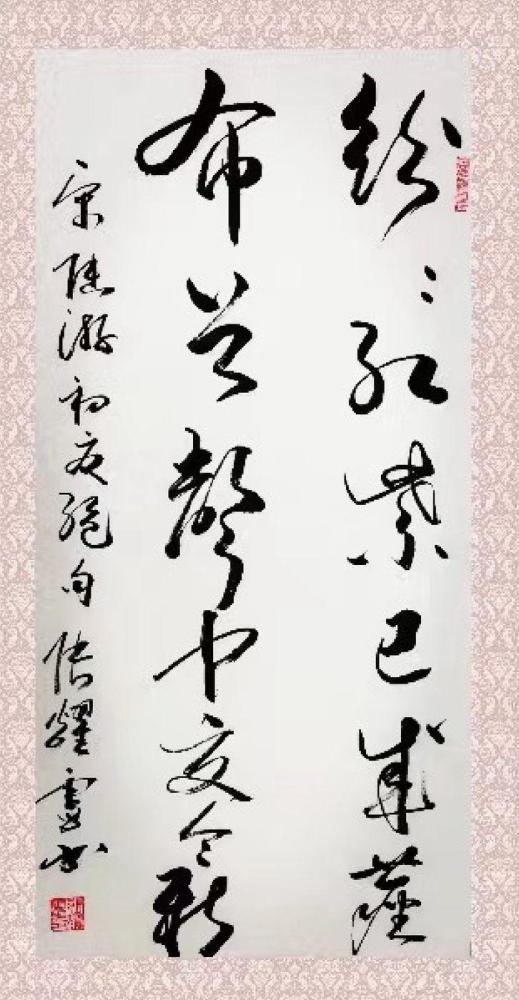 纷〻红紫已成尘
布谷声中夏令新
宋陆游初夏绝句 张耀云书